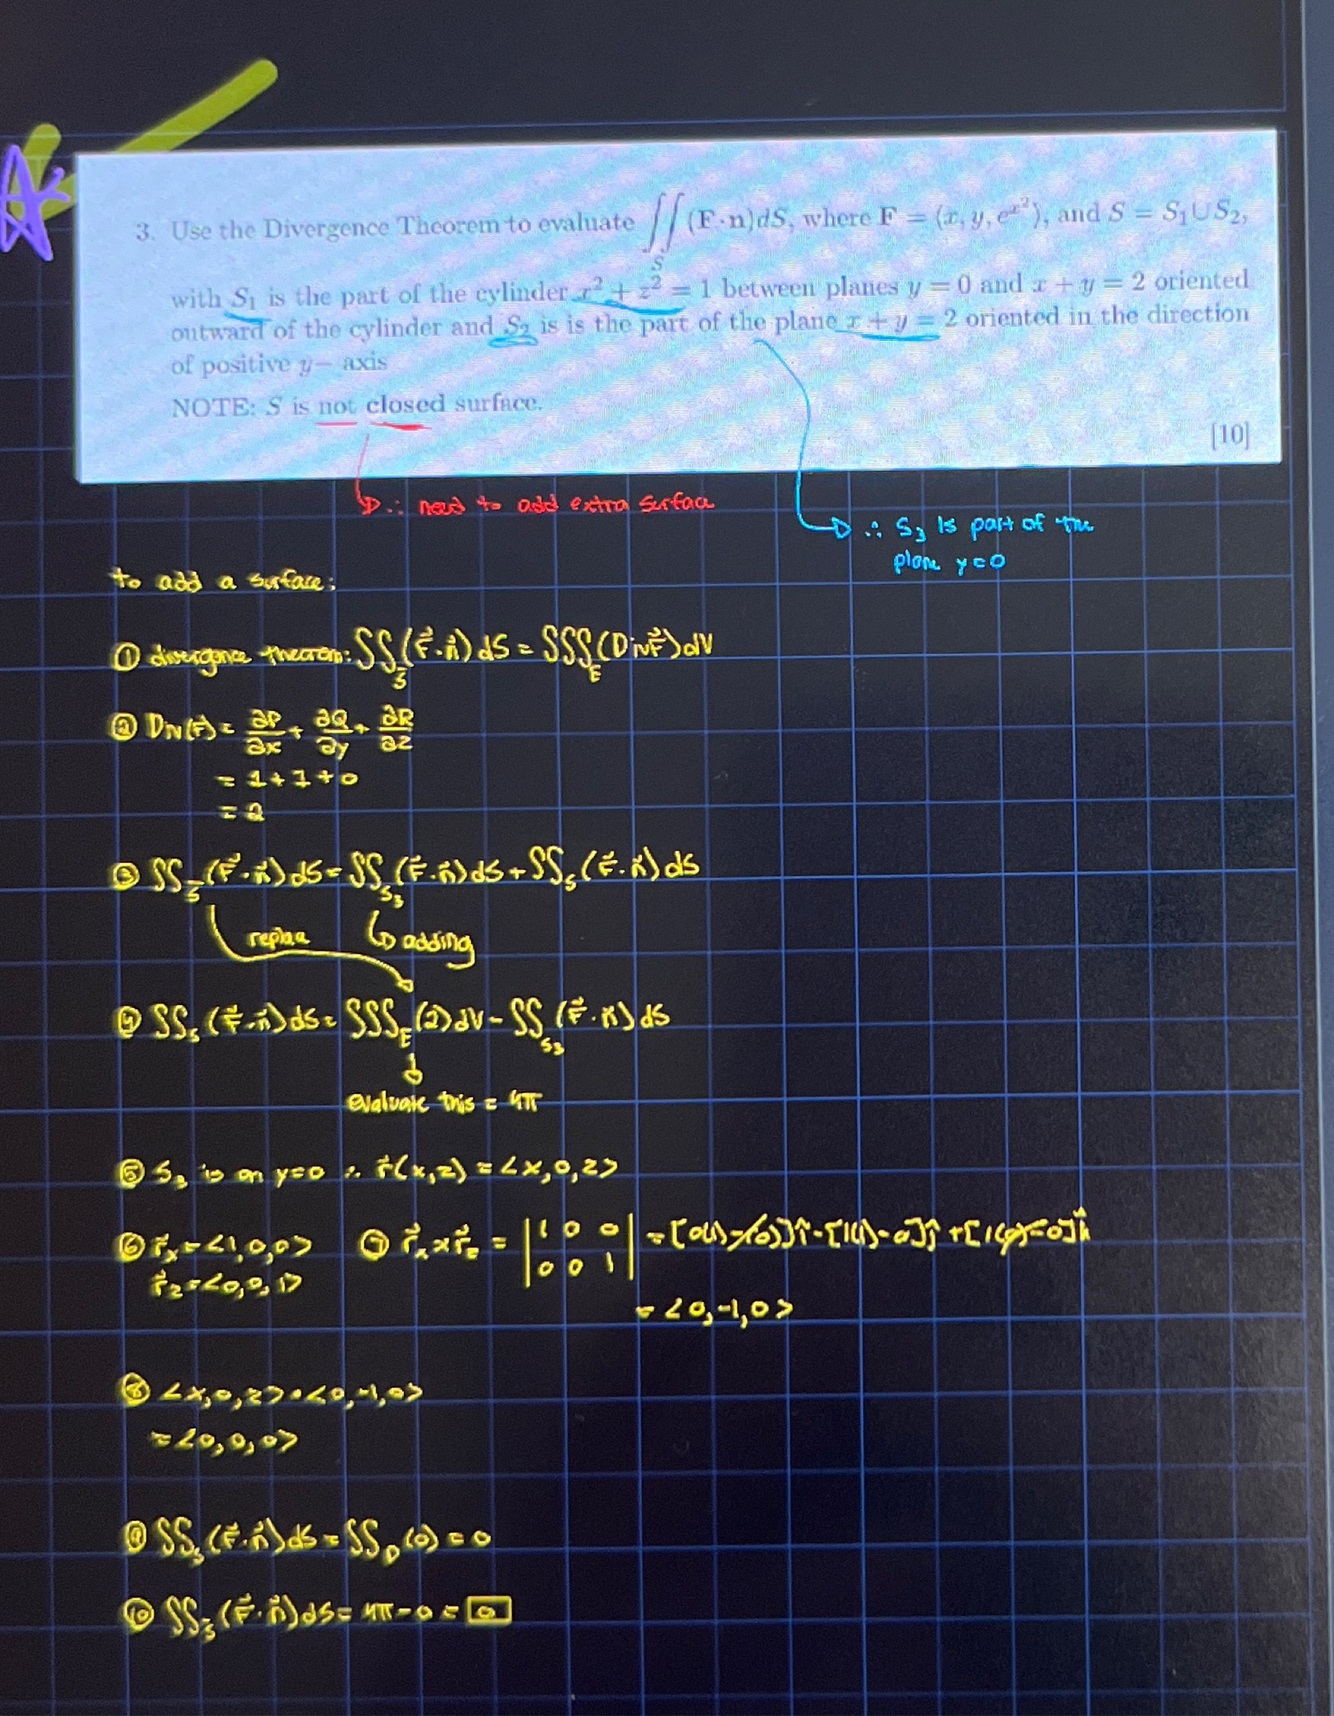 3. Use the Divergence Theorem to evaluate ∬_S (F·n)dS, where F = ⟨x, y, e^{x²}⟩, and S = S₁∪S₂,
with S₁ is the part of the cylinder x² + z² = 1 between planes y = 0 and x + y = 2 oriented
outward of the cylinder and S₂ is is the part of the plane x + y = 2 oriented in the direction
of positive y− axis
NOTE: S is not closed surface.
[10]
∴ need to add extra surface
∴ S₃ is part of the
plane y=0
to add a surface:
① divergence theorem: ∬_S̄ (F⃗·n⃗) dS = ∭_E (Div F⃗) dV
② Div(F) = ∂P/∂x + ∂Q/∂y + ∂R/∂z
= 1+1+0
= 2
③ ∬_S̄ (F⃗·n⃗) dS = ∬_S₃ (F⃗·n⃗) dS + ∬_S (F⃗·n⃗) dS
replace adding
④ ∬_S (F⃗·n⃗) dS = ∭_E (2) dV − ∬_S₃ (F⃗·n⃗) dS
evaluate this = 4π
⑤ S₃ is on y=0 ∴ r⃗(x,z) = <x,0,z>
⑥ r⃗x = <1,0,0> ⑦ r⃗x × r⃗z = |1 0 0| = [0(1)−(0)]î − [1(1)−0]ĵ + [1(0)−0]k̂
r⃗z = <0,0,1> |0 0 1|
= <0,-1,0>
⑧ <x,0,z> • <0,-1,0>
= <0,0,0>
⑨ ∬_S₃ (F⃗·n⃗) dS = ∬_D (0) = 0
⑩ ∬_S̄ (F⃗·n⃗) dS = 4π − 0 = 0